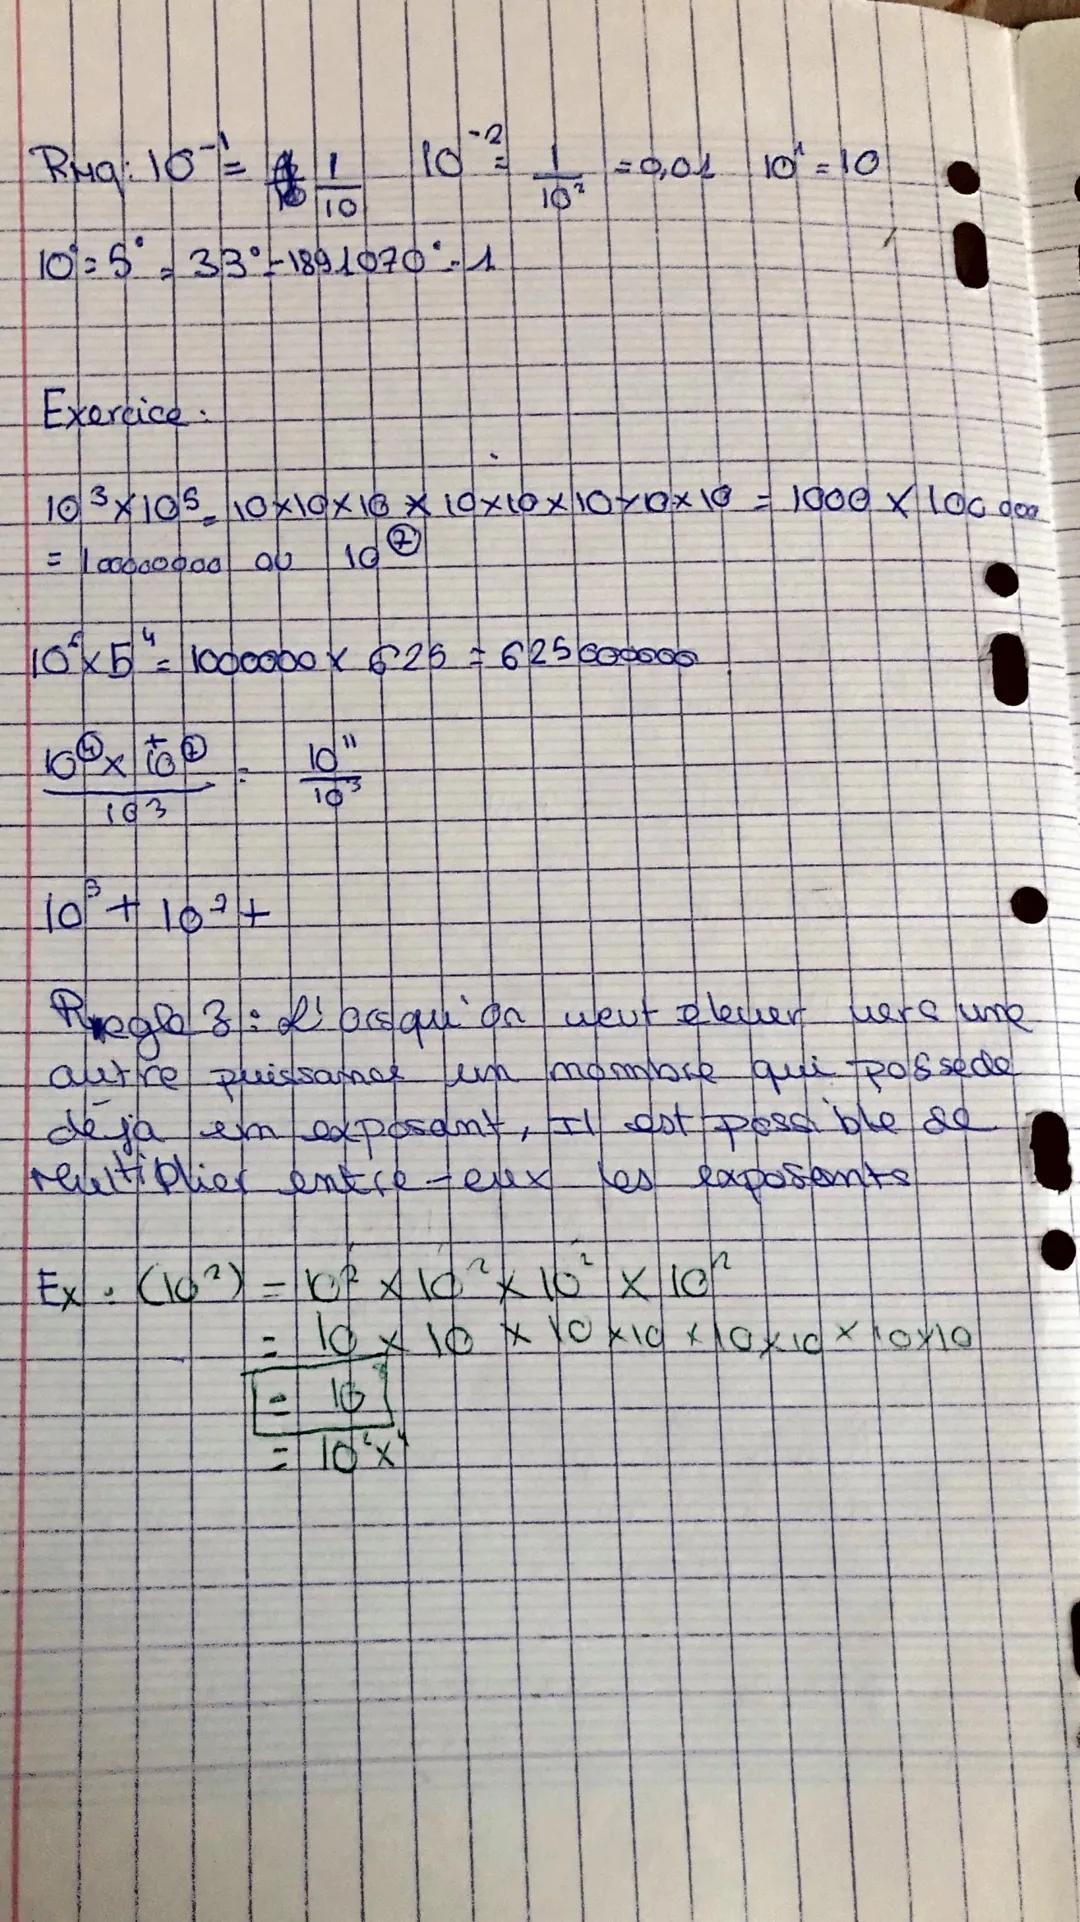 Rmq: 10⁻¹ = 1/10 10⁻² = 1/10² = 0,01 10¹ = 10
10° = 5° = 33° = 1891070° = 1
Exercice :
10³ × 10⁵ = 10×10×10 × 10×10×10×10×10 = 1000 × 100 000
= 100000000 ou 10⑦
10⁶ × 5⁴ = 1000000 × 625 = 625000000
10④ × 10⑦ / 10³ = 10¹¹ / 10³
10³ + 10² +
Regle 3 : L'orsqu'on veut elever vers une
autre puissance un nombre qui possede
déjà un exposant, Il est possible de
multiplier entre-eux les exposants
Ex : (10²) = 10² × 10² × 10² × 10²
= 10 × 10 × 10 × 10 × 10 × 10 × 10 × 10
= 10⁸
= 10²ˣ⁴